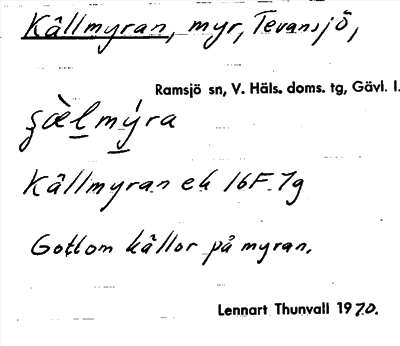 Källmyran, myr, Tevansjö,
Ramsjö sn, V. Häls. doms. tg, Gävl. l.
ʂæ̀lmýra
Källmyran ek 16F 7g
Gottom källor på myran.
Lennart Thunvall 1970.